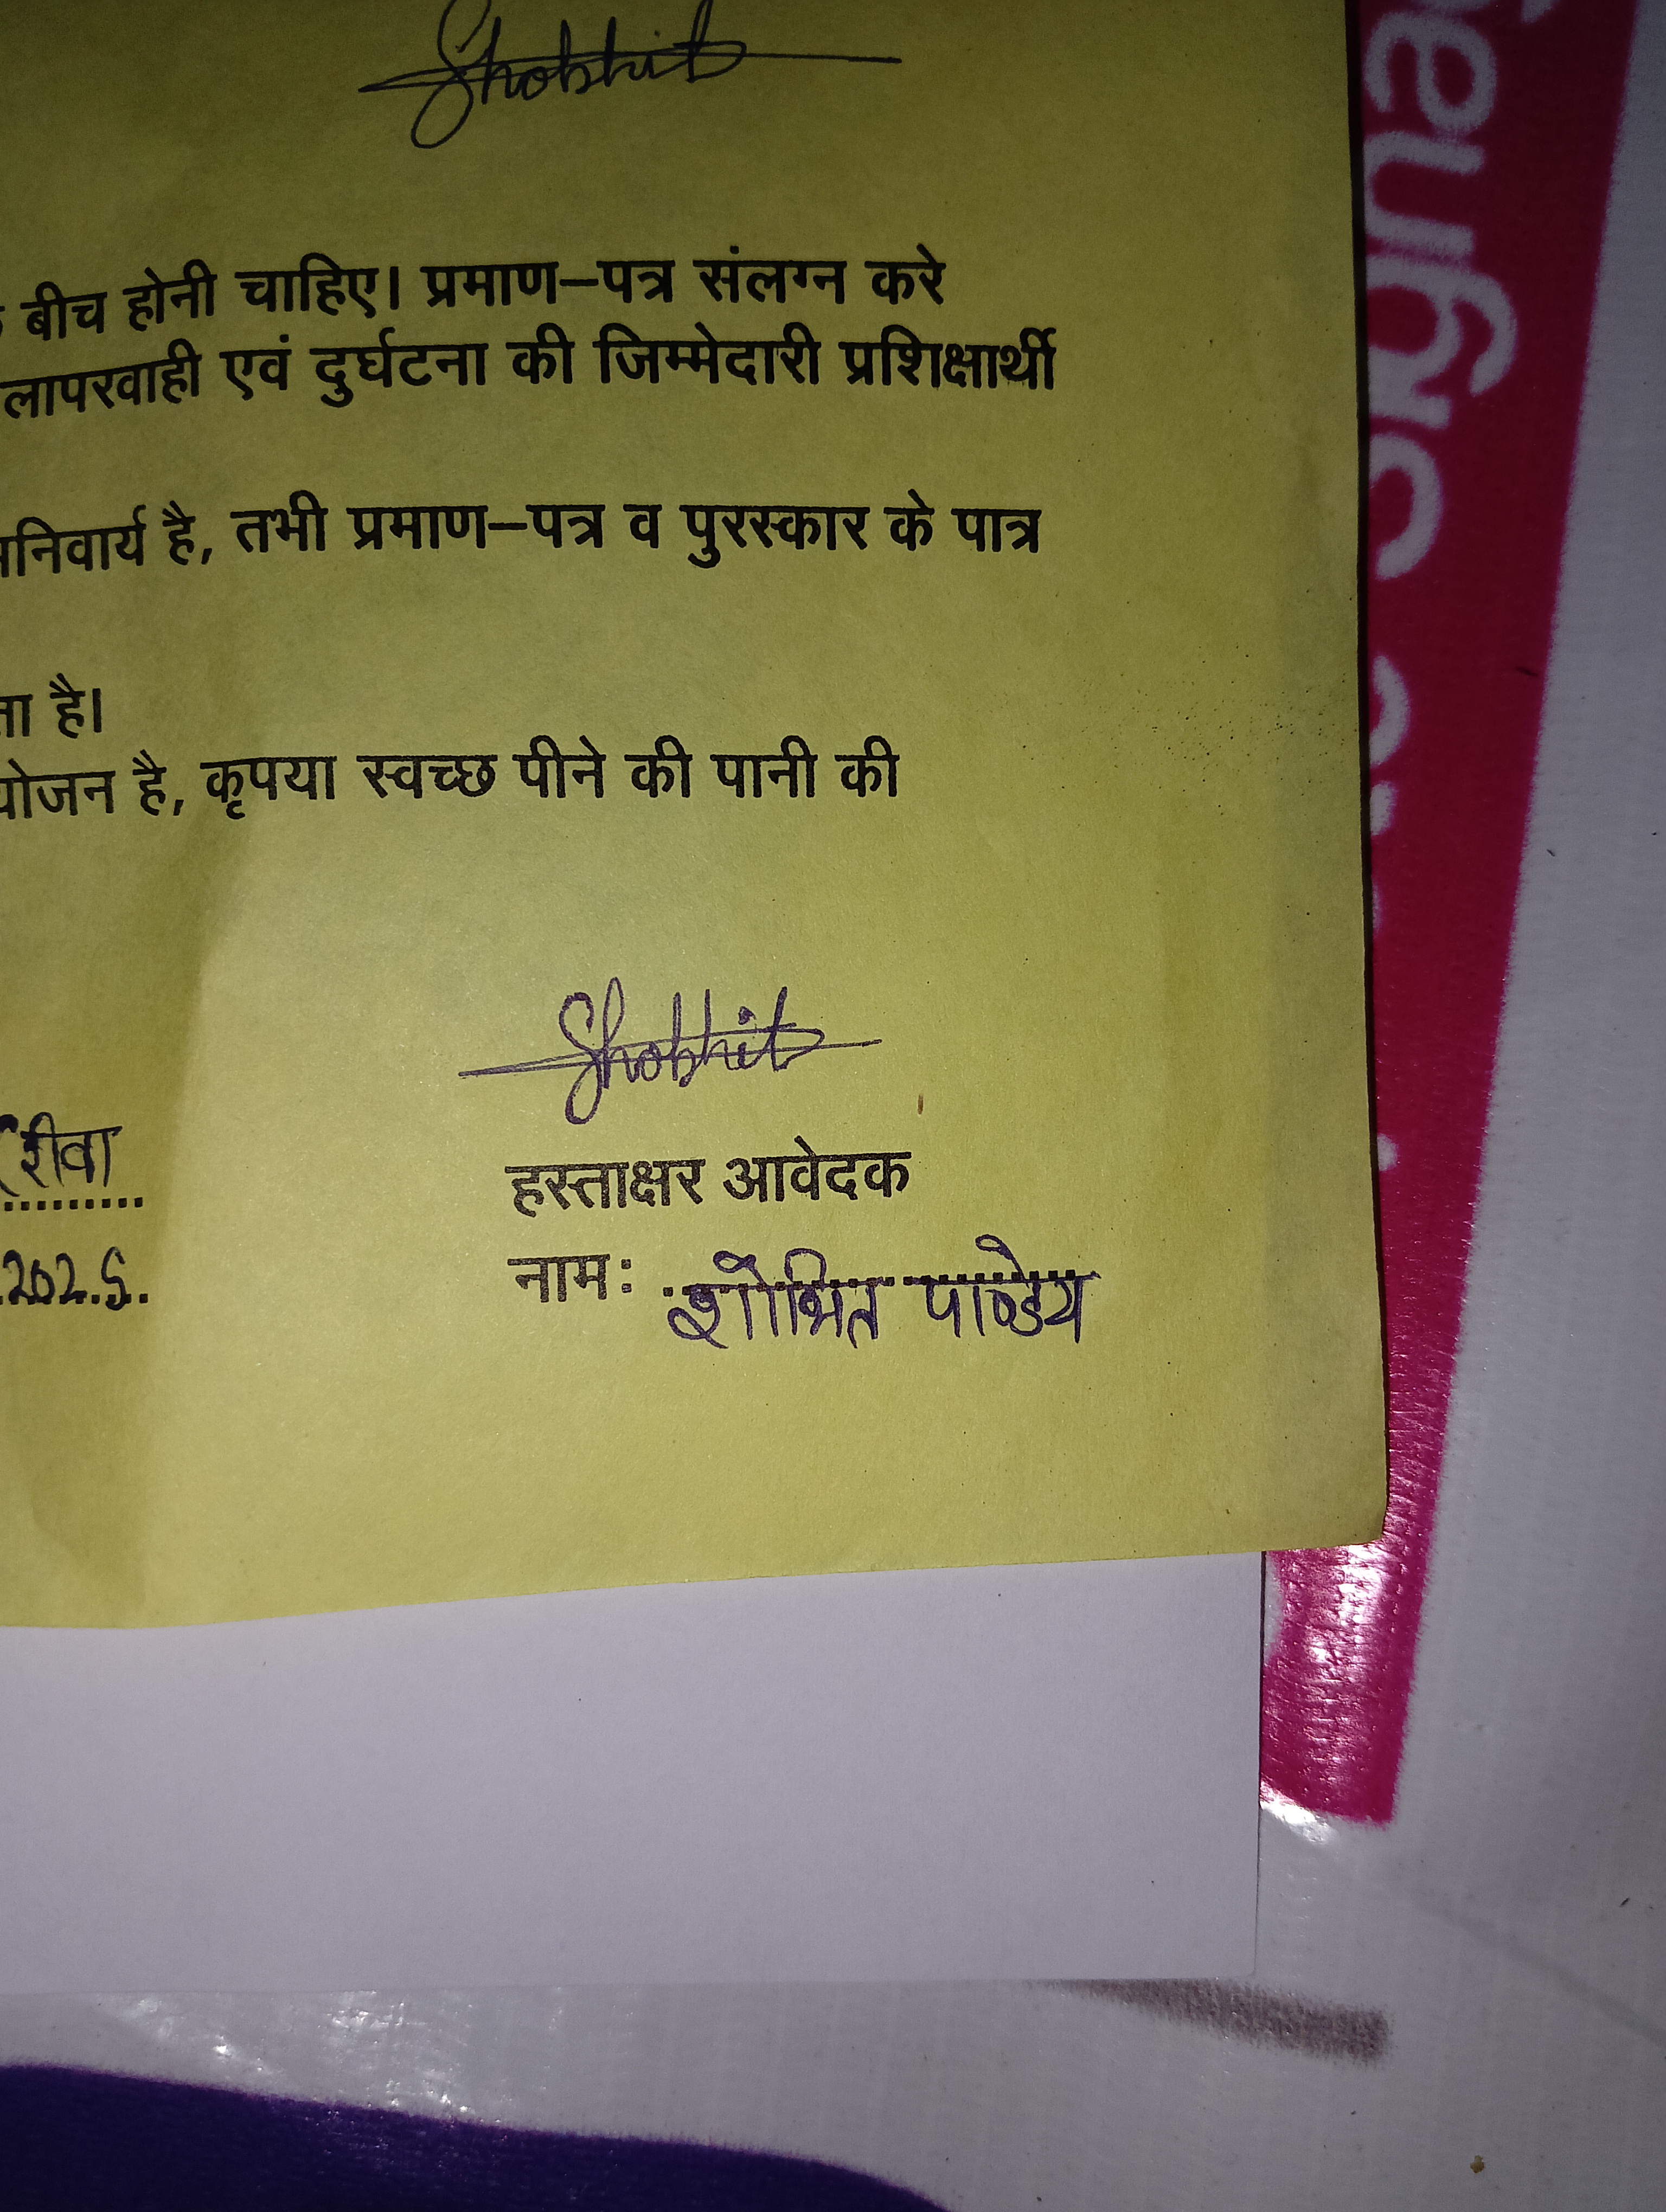 Shobhit
बीच होनी चाहिए। प्रमाण–पत्र संलग्न करे
लापरवाही एवं दुर्घटना की जिम्मेदारी प्रशिक्षार्थी
है, तभी प्रमाण–पत्र व पुरस्कार के पात्र
है।
है, कृपया स्वच्छ पीने की पानी की
Shobhit
रीवा
हस्ताक्षर आवेदक
2025.
नामः शोभित पाण्डेय